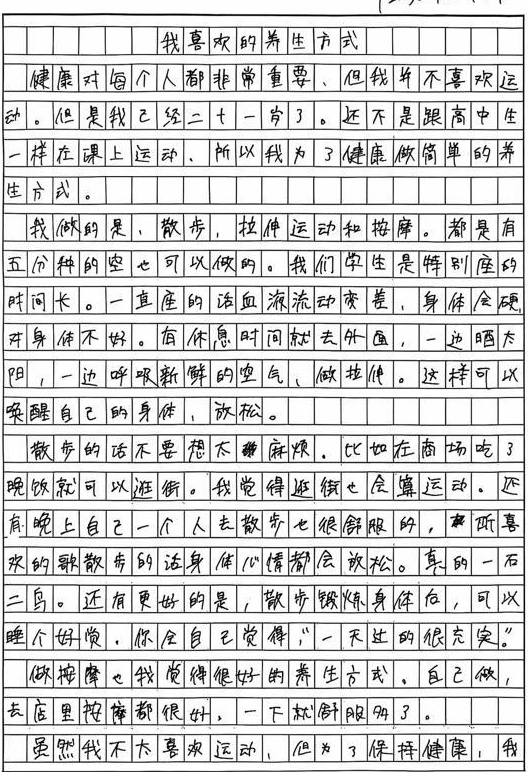 我喜欢的养生方式
健康对每个人都非常重要、但我并不喜欢运
动。但是我已经二十一岁了。还不是跟高中生
一样在课上运动、所以我为了健康做简单的养
生方式。
我做的是、散步，拉伸运动和按摩。都是有
五分种的空也可以做的。我们学生是特别座的
时间长。一直座的话血液流动变差，身体会硬，
对身体不好。有休息时间就去外面，一边晒太
阳，一边呼吸新鲜的空气、做拉伸。这样可以
唤醒自己的身体，放松。
散步的话不要想太麻烦．比如在商场吃了
晚饭就可以逛街。我觉得逛街也会算运动。还
有晚上自己一个人去散步也很舒服的，听喜
欢的歌散步的话身体心情都会放松。真的一石
二鸟。还有更好的是，散步锻炼身体后，可以
睡个好觉．你会自己觉得，“一天过的很充实。”
做按摩也我觉得很好的养生方式．自己做，
去店里按摩都很好．一下就舒服多了。
虽然我不太喜欢运动、但为了保持健康，我